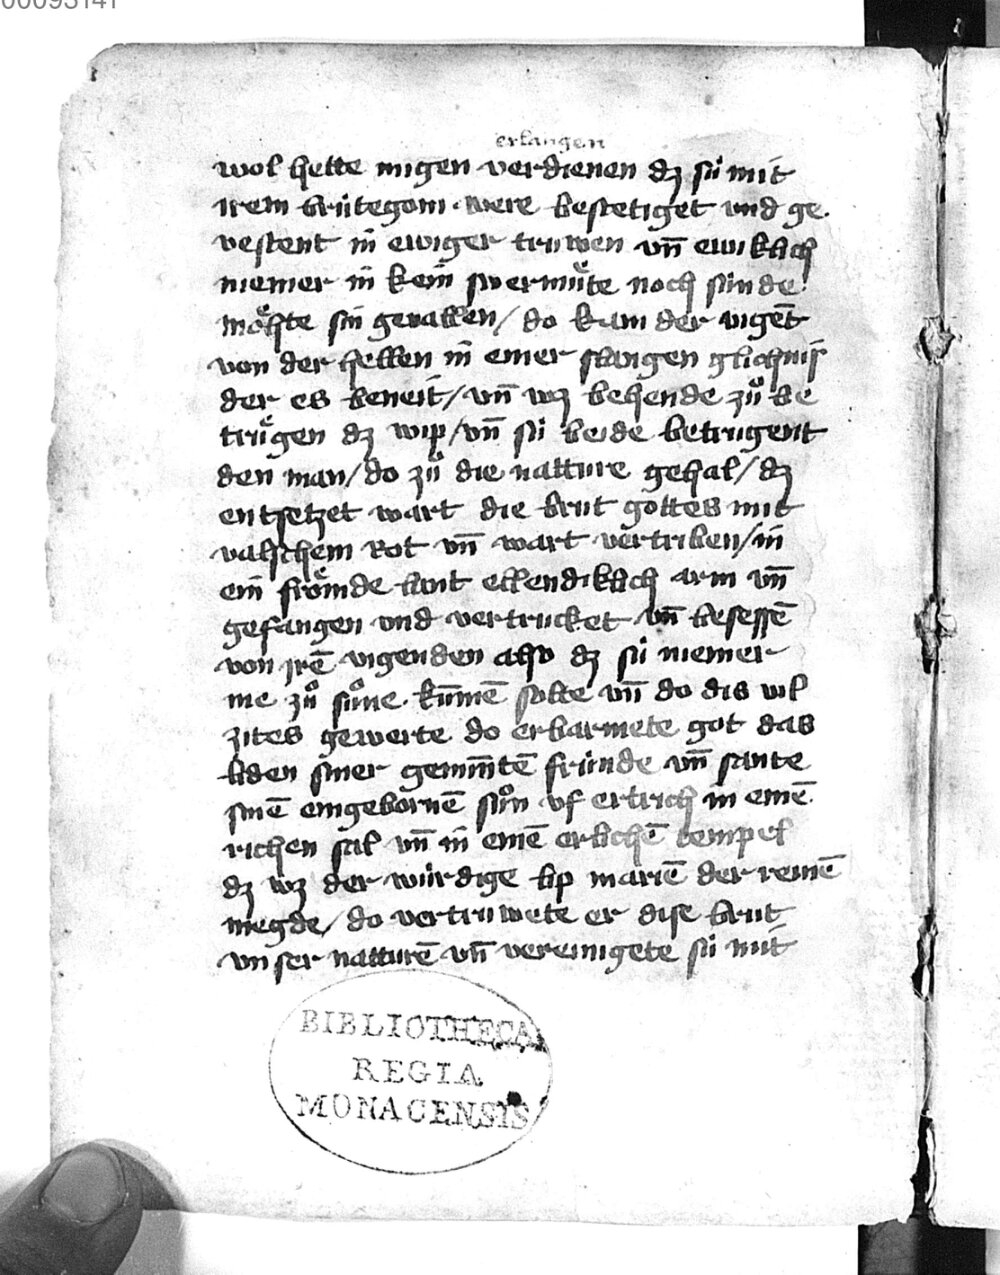 00093141
erlangen
wol hette migen verdienen dz sú mit
irem brútegom. were bestetiget vnd ge.
vestent in ewiger truwen vñ ewiklich
niemer in kein̄ swermuͤte noch súnde
moͤhte sin gevallen / do kam der vigēt
von der hellen in einer slangen glichnis
der es beneit / vñ wz behende zuͦ be
trúͤgen dz wip / vñ si beide betrugent
den man / do zuͦ die natture gehal / dz
entsetzet wart die brut gottes mit
valschem rot vñ wart vertriben / in
ein̄ froͤmde lant ellendiklich arm vñ
gefangen vnd vertrucket vñ besessē
von jrē vigenden also dz sú niemer
me zuͦ suͦne. kum̄ē solte vñ do dis vil
zites gewerte do erbarmete got das
liden siner gemim̄tē frúnde vñ sante
sinē eingebornē suͦn vf ertrich in einē.
richen sal vñ in einē erlichē tempel
dz wz der wúrdige lip mariē der reinē
megde / do vertruwete er dise brut
vnser natturē vñ vereinigete sú mit
BIBLIOTHECA
REGIA
MONACENSIS